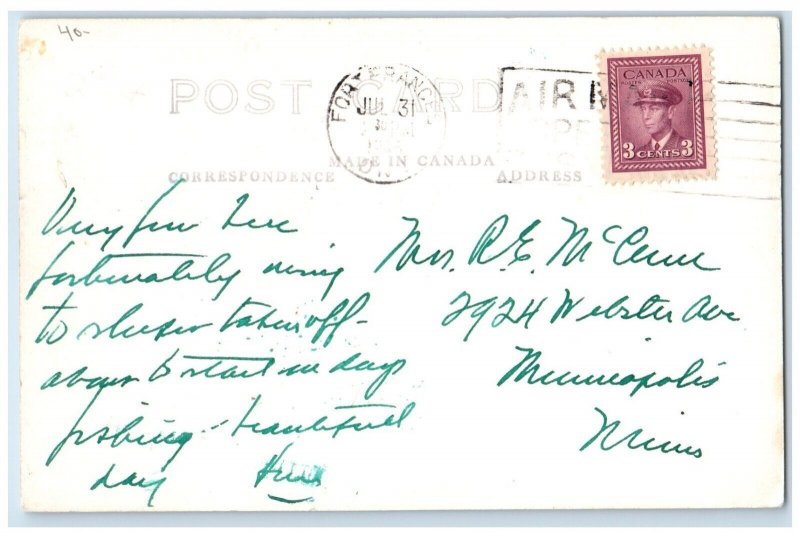 40-
POST CARD
FORT FRANCES
JUL 31
ONT
AIR M
CANADA
POSTES POSTAGE
3 CENTS 3
MADE IN CANADA
CORRESPONDENCE
ADDRESS
Very few here
fortunately using
to sleeper takeoff-
about to start in days
fishing - beautiful
day
Mrs. R. E. McCune
2924 Webster Ave
Minneapolis
Minn